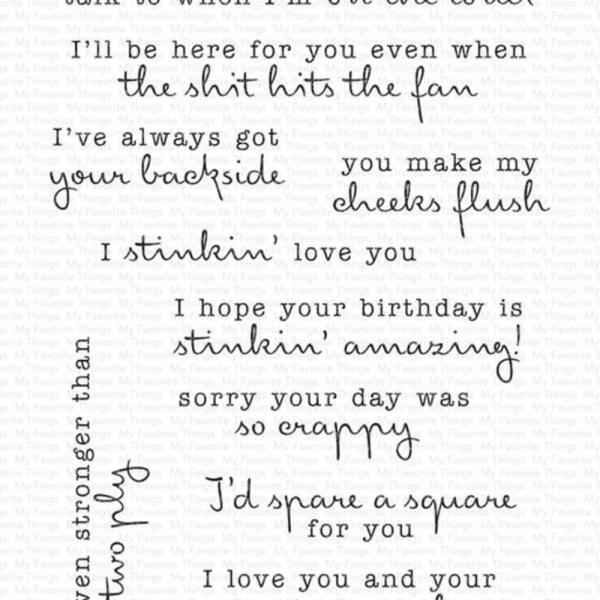 I'll be here for you even when
the shit hits the fan
I've always got
your backside
you make my
cheeks flush
I stinkin' love you
I hope your birthday is
stinkin' amazing!
sorry your day was
so crappy
stronger than
two ply
I'd spare a square
for you
I love you and your
My Favorite Things